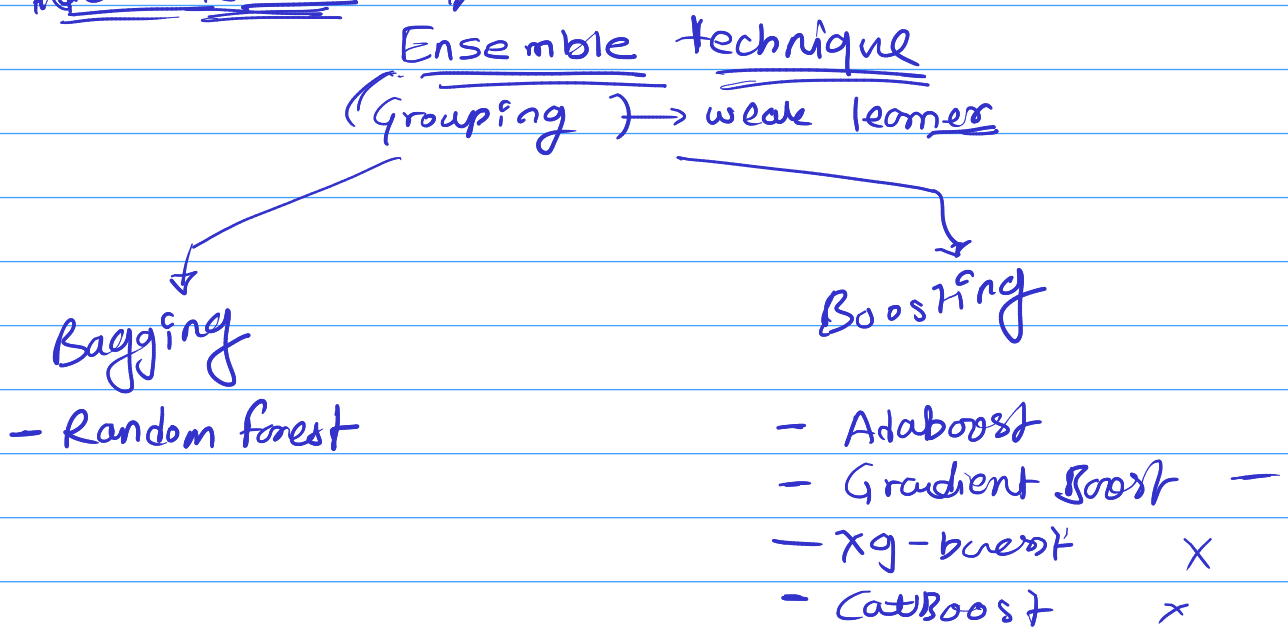 Ensemble technique
(Grouping) → weak learner
Bagging
Boosting
- Random forest
- Adaboost
- Gradient Boost -
- xg-boost X
- CatBoost x